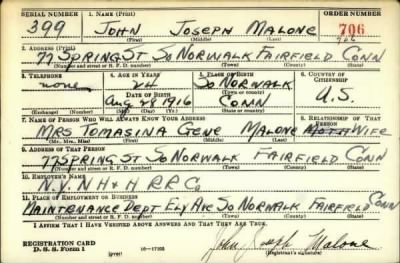 SERIAL NUMBER 1. NAME (Print) ORDER NUMBER
399 JOHN JOSEPH MALONE 706
(First) (Middle) (Last)
2. ADDRESS (Print)
77 SPRING ST SO NORWALK FAIRFIELD CONN
(Number and street or R. F. D. number) (Town) (County) (State)
3. TELEPHONE 4. AGE IN YEARS 5. PLACE OF BIRTH 6. COUNTRY OF CITIZENSHIP
none 24 SO NORWALK U.S.
DATE OF BIRTH (Town or county)
Aug 28 1916 CONN
(Exchange) (Number) (Mo.) (Day) (Yr.) (State or country)
7. NAME OF PERSON WHO WILL ALWAYS KNOW YOUR ADDRESS 8. RELATIONSHIP OF THAT PERSON
MRS TOMASINA GENE MALONE WIFE
(Mr., Mrs., Miss) (First) (Middle) (Last)
9. ADDRESS OF THAT PERSON
77 SPRING ST SO NORWALK FAIRFIELD CONN
(Number and street or R. F. D. number) (Town) (County) (State)
10. EMPLOYER'S NAME
N.Y. N H & H R R Co.
11. PLACE OF EMPLOYMENT OR BUSINESS
MAINTENANCE DEPT ELY AVE SO NORWALK FAIRFIELD CONN
(Number and street or R. F. D. number) (Town) (County) (State)
I AFFIRM THAT I HAVE VERIFIED ABOVE ANSWERS AND THAT THEY ARE TRUE.
REGISTRATION CARD
D. S. S. Form 1 16—17105 John Joseph Malone
(Registrant's signature)